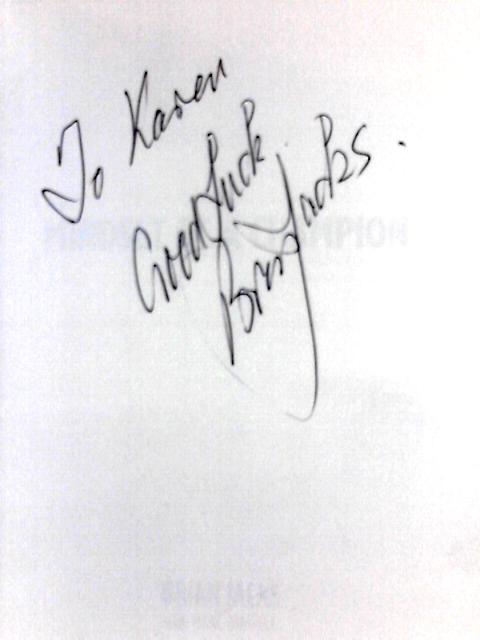 To Karen
Good Luck
Brian Jacks.
MINDSET OF A CHAMPION
BRIAN JACKS